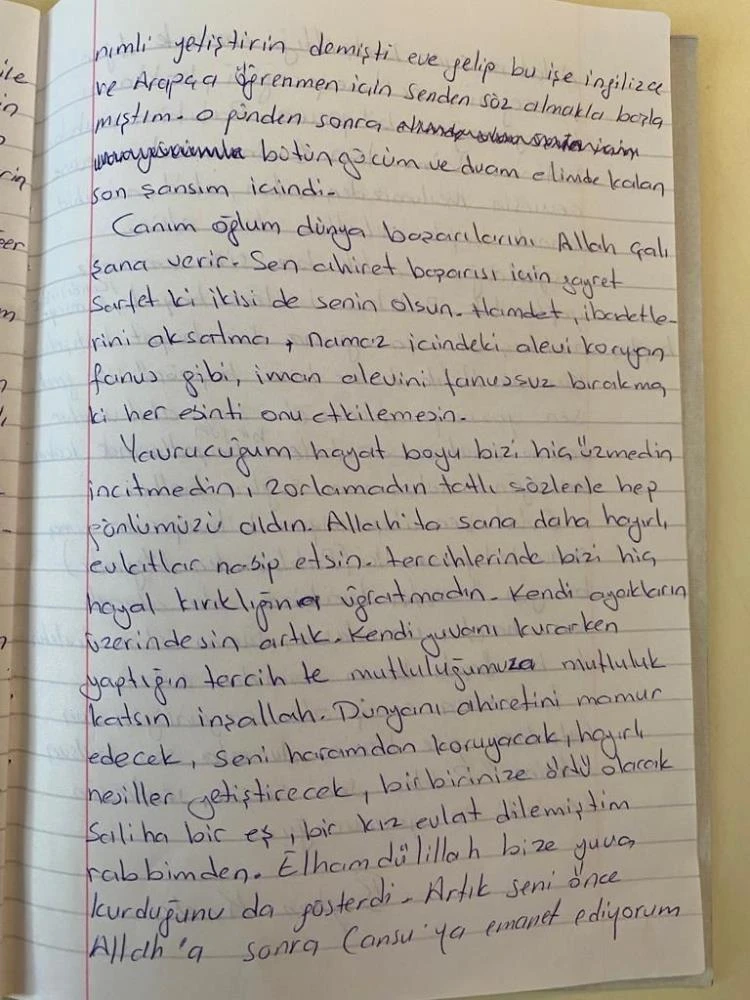 nımlı yetiştirin demişti eve gelip bu işe ingilizce
ve Arapça öğrenmen için senden söz almakla başla
mıştım. O günden sonra
bütün gücüm ve duam elimde kalan
son şansım içindi.
Canım oğlum dünya başarılarını Allah çalı
şana verir. Sen ahiret başarısı için gayret
Sarfet ki ikisi de senin olsun. Hamdet, ibadetle-
rini aksatma, namaz içindeki alevi koruyan
fanus gibi, iman alevini fanussuz bırakma
ki her esinti onu etkilemesin.
Yavrucuğum hayat boyu bizi hiç üzmedin
incitmedin, zorlamadın tatlı sözlerle hep
gönlümüzü aldın. Allah'ta sana daha hayırlı
evlatlar nasip etsin. tercihlerinde bizi hiç
hayal kırıklığına uğratmadın. Kendi ayakların
üzerindesin artık. Kendi yuvanı kurarken
yaptığın tercih te mutluluğumuza mutluluk
katsın inşallah. Dünyanı ahiretini mamur
edecek, seni haramdan koruyacak, hayırlı
nesiller yetiştirecek, birbirinize örtü olacak
Saliha bir eş, bir kız evlat dilemiştim
rabbimden. Elhamdülillah bize yuva
kurduğunu da gösterdi. Artık seni önce
Allah'a sonra Cansu'ya emanet ediyorum